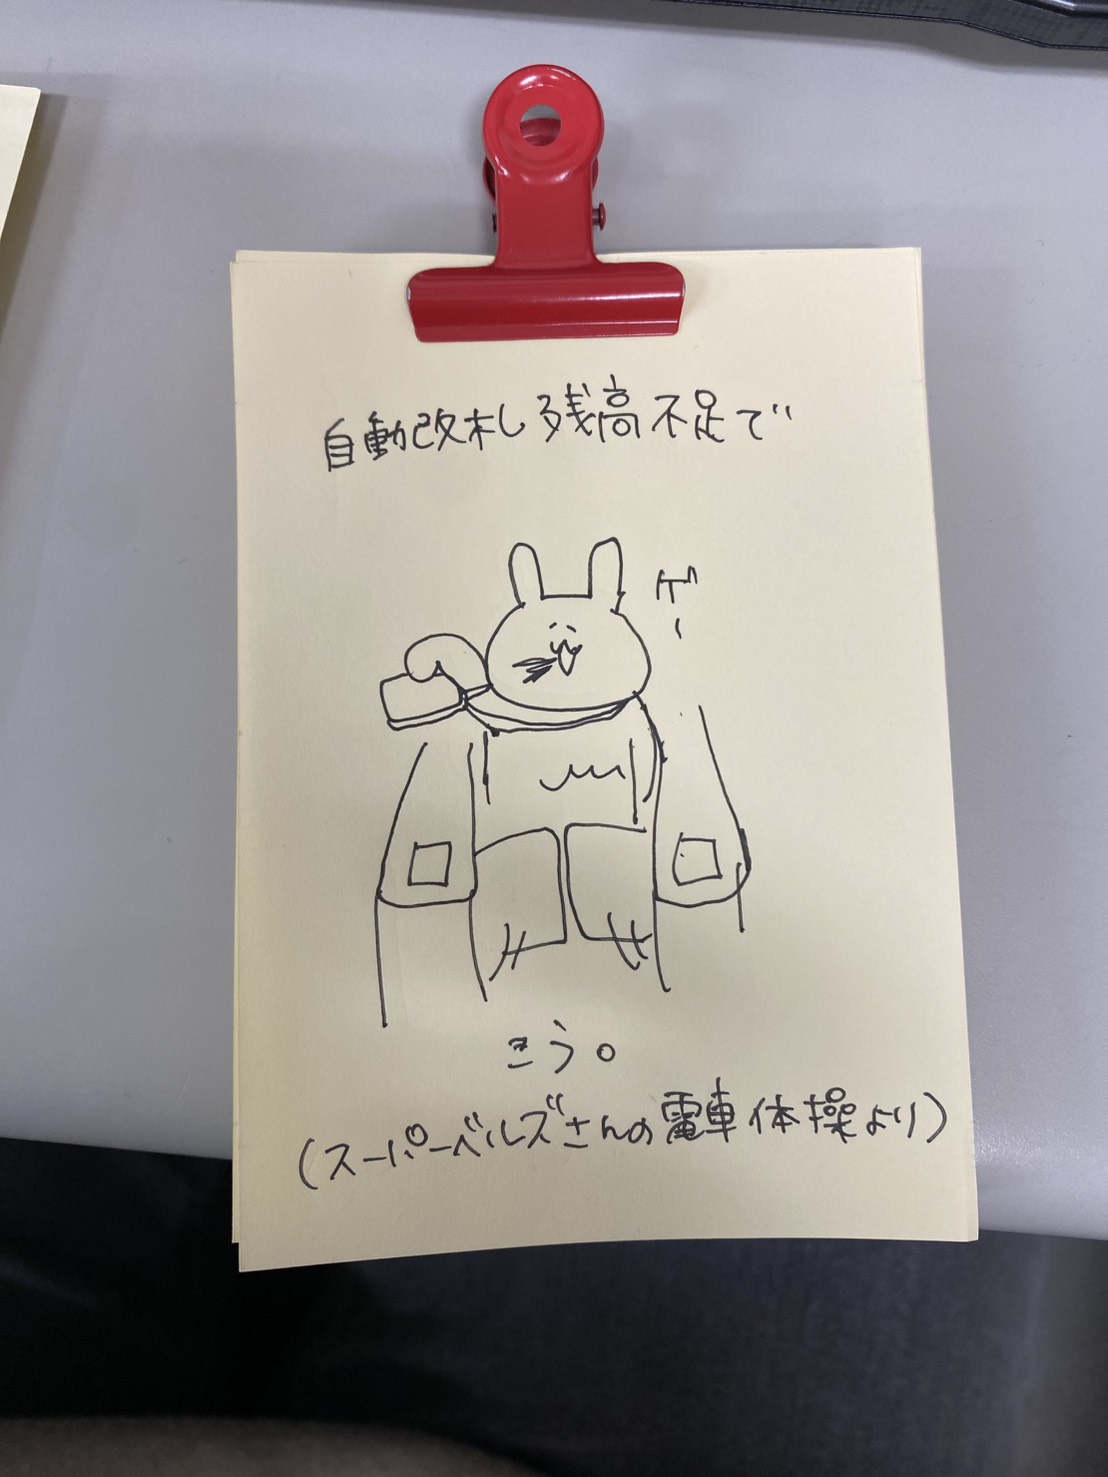 自動改札し残高不足で
ゲー
こう。
(スーパーベルズさんの電車体操より)